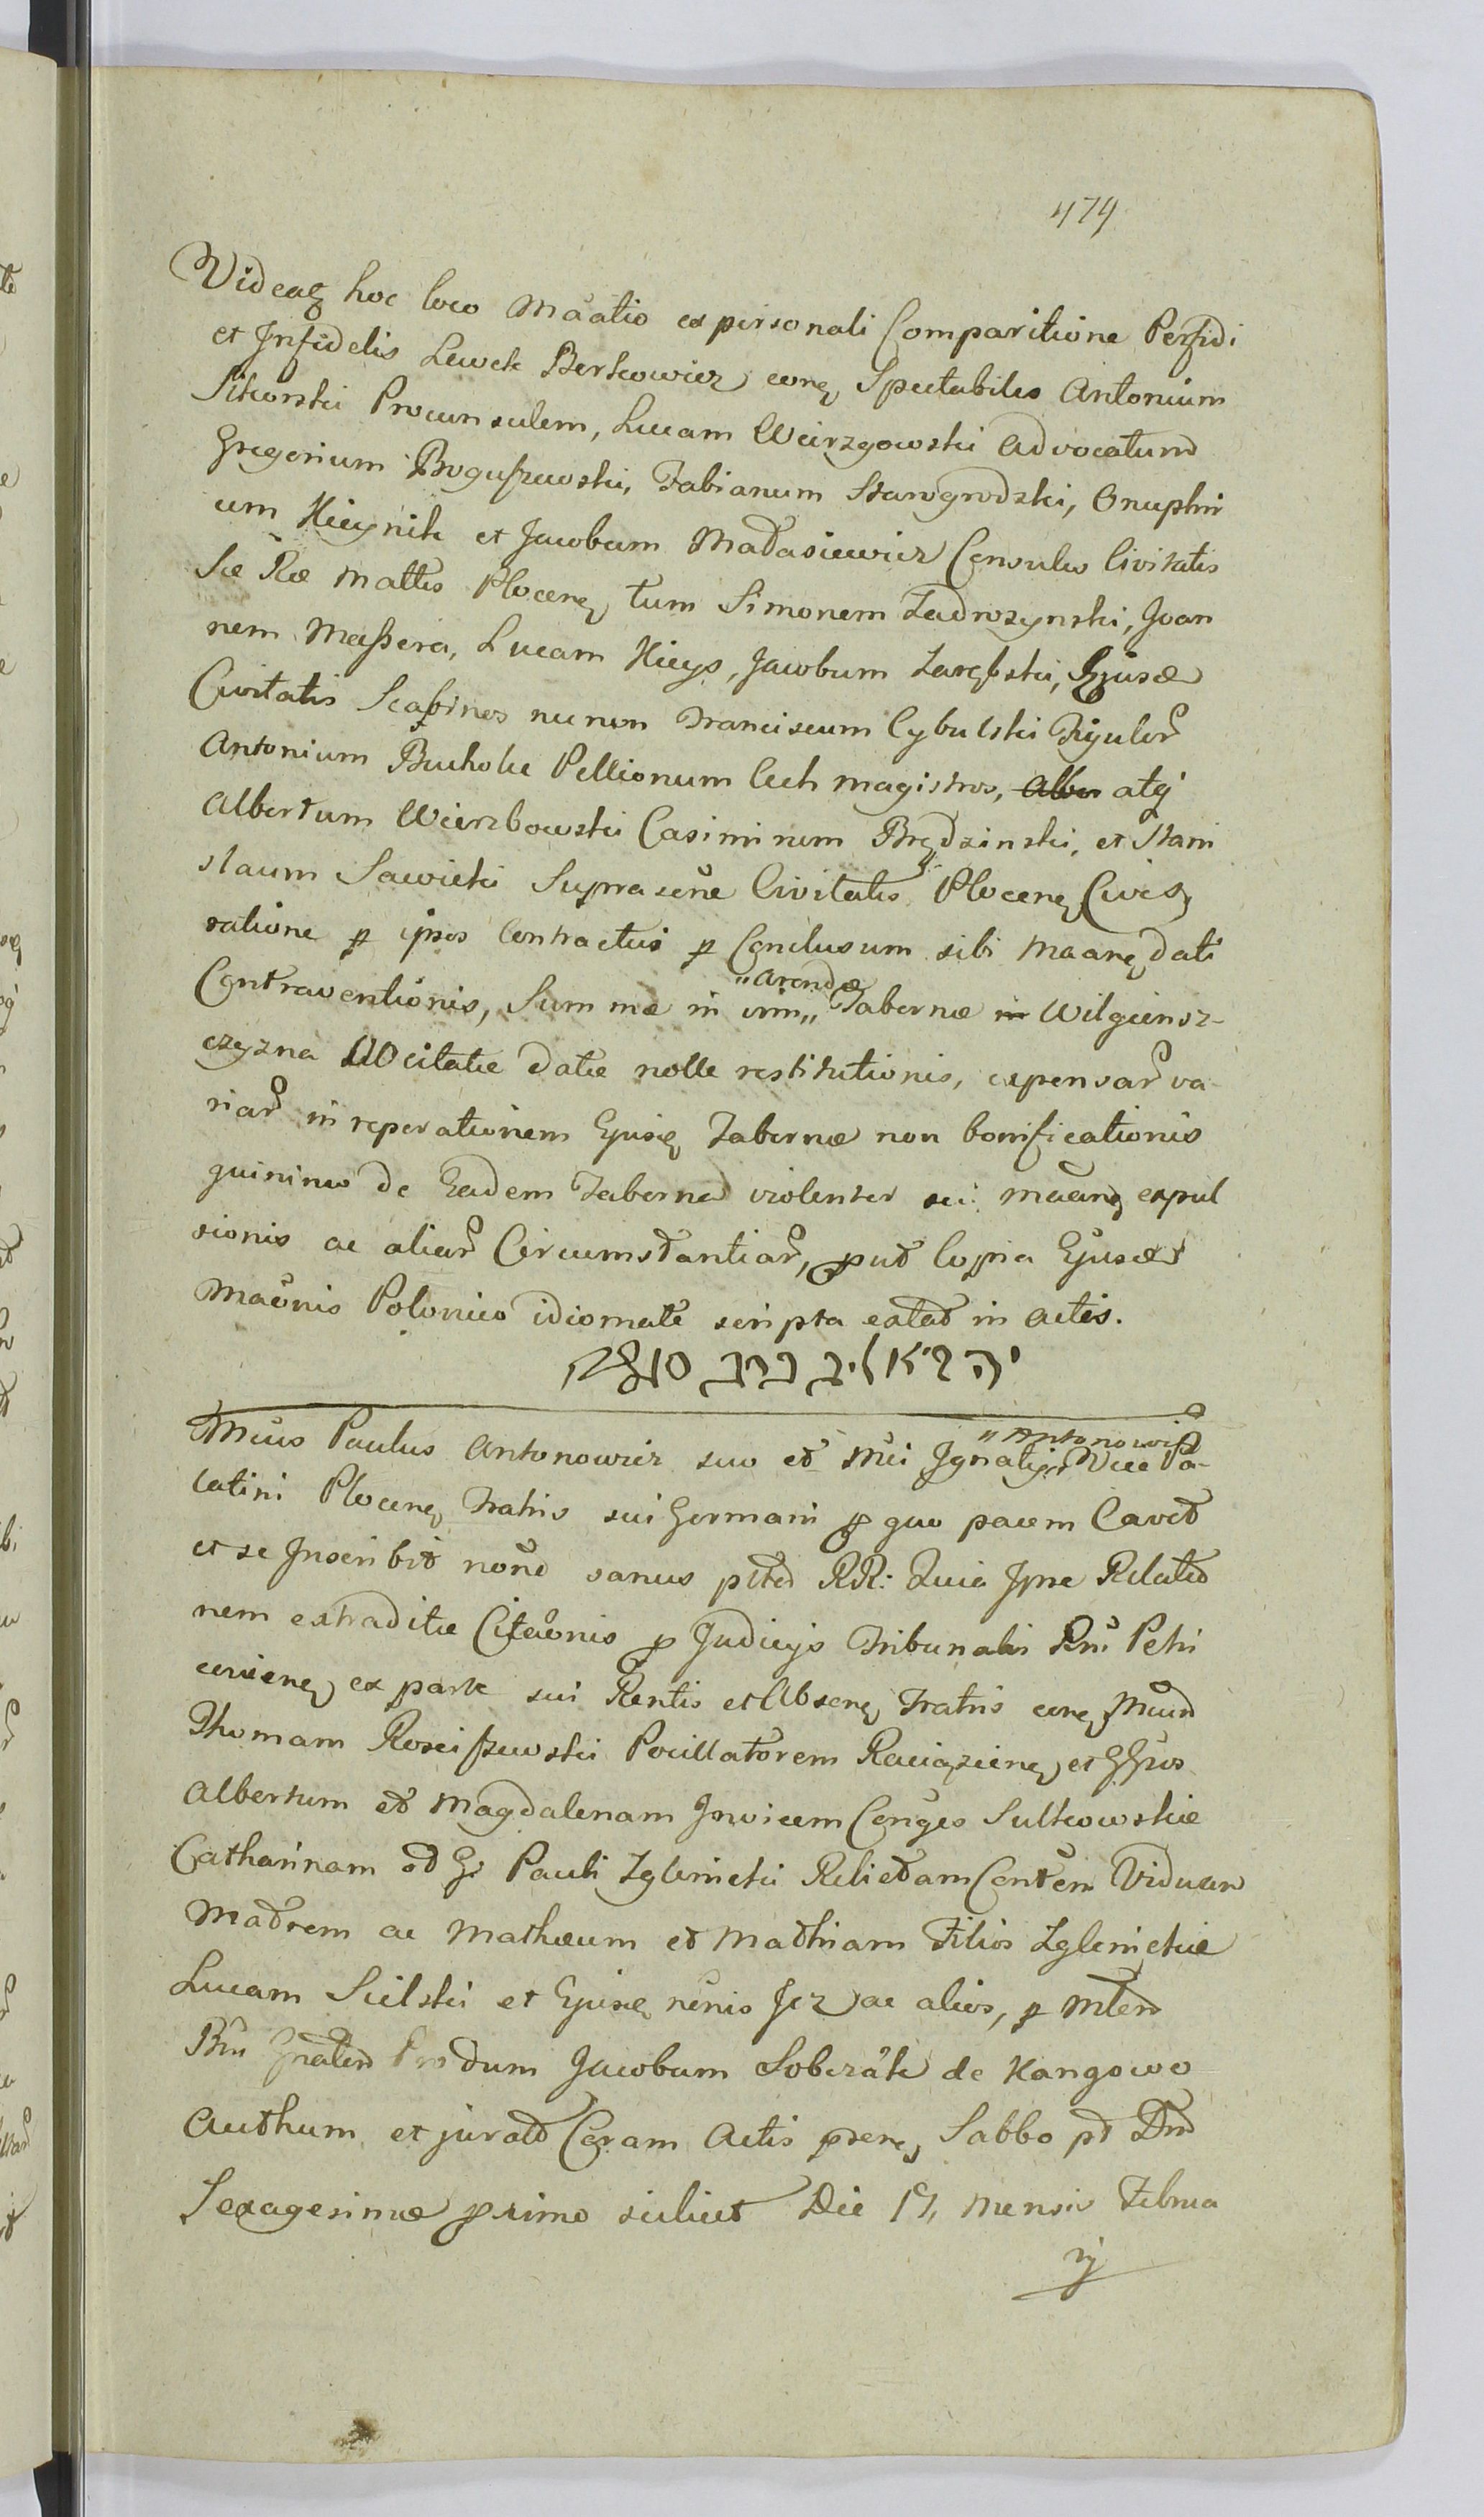 474
Videatq hoc loco Maatio ex personali Comparitione Perfidi
et Infidelis Lewek Berkowicz conq Spectabiles Antonium
Sikorski Proconsulem, Lucam Wierzgowski Advocatum
Gregorium Boguszewski, Fabianum Starogrodzki, Onuphri
um Kieynik et Jacobum Matasiewicz Consules Civitatis
Sæ Ræ Mattis Plocenq tum Simonem Zadrozynski, Joan
nem Massera, Lucam Kieys, Jacobum Zarębski, Ejusd
Civitatis Scabinos necnon Franciscum Cybulski Figulor
Antonium Bucholc Pellionum Cech magistros, Alber atq
Albertum Wierzbowski Casimirum Brędzinski, et Stani
slaum Sawicki Suprascne Civitatis Plocenq Cives,
ratione p ipsos Contractus p Conclusum sibi Maanq dati
"Arendæ
Contraventionis, Summæ in vim,, Tabernæ in Wilgiensz-
czyzna Vocitatæ datæ nolle restitutionis, expensar va-
riar in reperationem Ejusq Tabernæ non bonificationis
quinimo de Eadem Taberna violenter sui Maanq expul
sionis ac aliar Circumstantiar, put Copia Ejusd
Maonis Polonico idiomate scripta extat in actis.
Mcus Paulus Antonowicz suo et Mci Ignatij,, Vice Pa-
"Antonowicz
latini Plocenq Fratris sui Germani p quo pacem Cavet
et se Inscribit none sanus RR: Quia Ipne Relatio
nem extraditæ Citaonis p Judicijs Tribunalis Rni Petri
covienq ex parte sui Rentis et Absenq Fratris conq Mcum
Thomam Rosciszewski Pocillatorem Raciązienq et GGsos
Albertum et Magdalenam Invicem Conges Sulkowskie
Catharinam od Gs Pauli Zglenicki Relictam Viduam
Matrem ac Mathæum et Mathiam Filios Zglenickie
Lucam Sielski et Ejusq nenis Jcz ac alios, p Mlem
Produm Jacobum Sobczak de Kangowo
Authum et jurat Coram Actis psenq Sabbo pt Dni
Sexagesimæ primo scilicet Die 17, Mensis Februa
rij